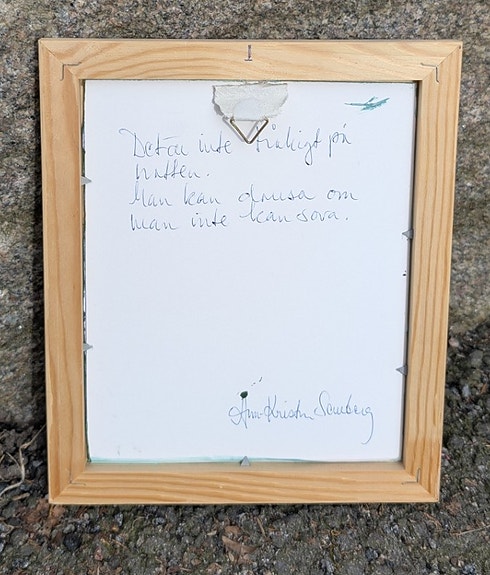 Det är inte tråkigt på
natten.
Man kan dansa om
man inte kan sova.
Ann-Kristin